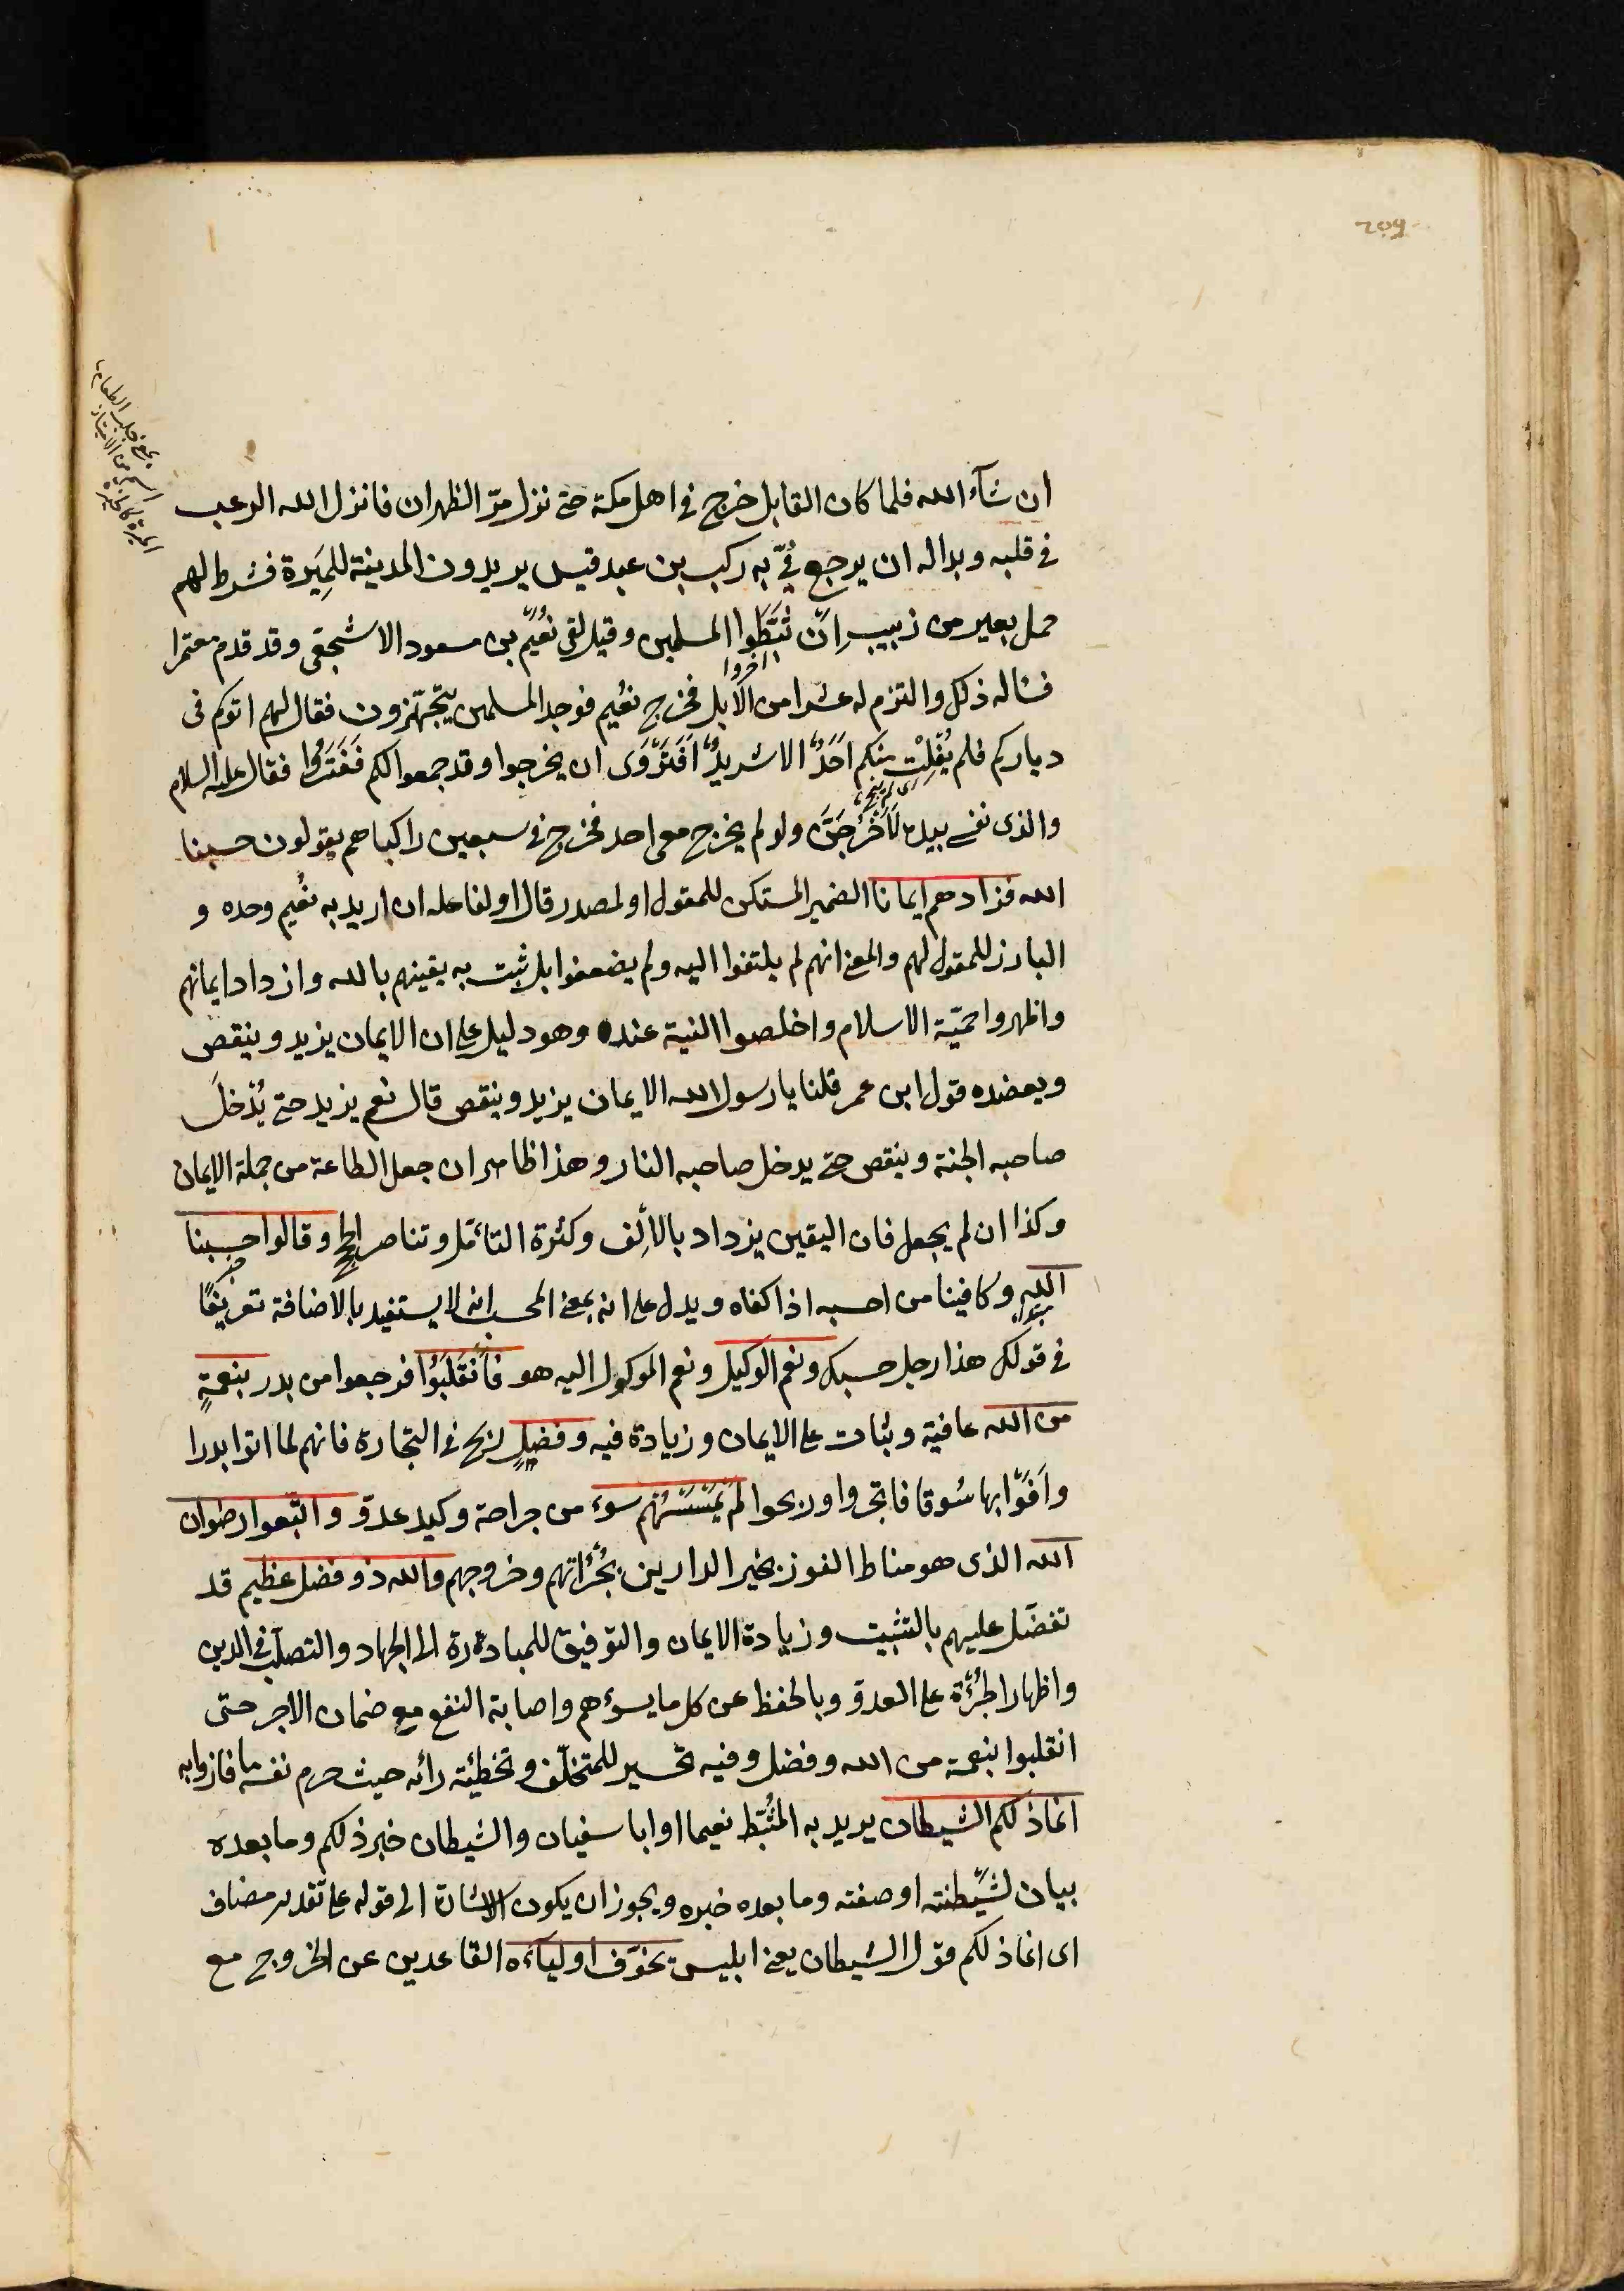 209
ان شآء الله فلما كان القابل خرج فى اهل مكة حتى نزل مرّ الظهران فانزل الله الرعب
فى قلبه وبدا له ان يرجع فمرّ به ركب بن عبد قيس يريدون المدينة للمِيَرة فشرط لهم
حمل بعير من زبيب ان ثَبَّطوا المسلمين وقيل لقى نعُيَم بن مسعود الاشجعى وقد قدم معتمرا
اخروا
فساله ذلك والتزم له عشرا من الابل فخرج نعُيم فوجد المسلمين يتجهّزون فقال لهم اتوكم فى
دياركم فلم يُفْلِتْ منكم احَدٌ الا شريدٌ افَتَرَوَْن ان يخرجوا وقد جمعوا لكم فَفَتَرُوا فقال عليه السلام
اى لم ينج
والذى نفسى بيده لَاَخْرُجَنَّ ولو لم يخرج معى احد فخرج فى سبعين راكبا هم يقولون حسبنا
الله فزادهم ايمانا الضمير المستكن للمقول او لمصدر قال او لفاعله ان اريد به نعُيم وحده و
البارز للمقول لهم والمعنى انهم لم يلتفوا اليه ولم يضعفوا بل ثبت به يقينهم بالله وازداد ايمانهم
واظهروا حميّة الاسلام واخلصوا النية عنده وهو دليل على ان الايمان يزيد وينقص
ويعضده قول ابن عمر قلنا يا رسول الله الايمان يزيد وينقص قال نعم يزيد حتى يُدْخلَ
صاحبه الجنة وينقص حتى يدخل صاحبه النار وهذا ظاهر ان جعل الطاعة من جملة الايمان
وكذا ان لم يجعل فان اليقين يزداد بالاِلف وكثرة التاَمّل وتناصر الحجج وقالوا حسبنا
الله وكافينا من احسبه اذا كفاه ويدل على انه بمعنى المحسب انه لا يستفيد بالاضافة تعريفًا
فى قولك هذا رجل حسبك ونعم الوكيل ونعم الموكول اليه هو فَانْقَلَبُوا فرجعوا من بدر بنعمةٍ
من الله عافية وثبات على الايمان وزيادة فيه وفضلٍ ربح فى التجارة فانهم لما اتوا بدرا
واَفَوّا بها سُوقا فاتجروا وربحوا لَمْ يَمْسَسْهُم سوء من جراحة وكيد عدوّ واتّبعوا رضوان
الله الذى هو مناط الفوز بخير الدارين بجُرْأتهم وخروجهم والله ذو فضل عظيم قد
تفضّل عليهم بالتثبيت وزيادة الايمان والتوفيق للمبادرة الى الجهاد والتصلّب فى الدين
واظهار الجُرْأة على العدوّ وبالحفظ عن كل ما يسؤهم واصابة النفع مع ضمان الاجر حتى
انقلبوا بنعمة من الله وفضل وفيه تحسير للمتخلّف وتخطئة رائه حيث حرم نفسه ما فازوا به
انما ذلكم الشيطان يريد به المثُبّط نعيما او ابا سفيان والشيطان خبر ذلكم وما بعده
بيان لشَيْطنته او صفته وما بعده خبره ويجوز ان يكون الاشارة الى قوله على تقدير مضاف
اى انما ذلكم قول الشيطان يعنى ابليس يخوّف اولياءه القاعدين عن الخروج مع